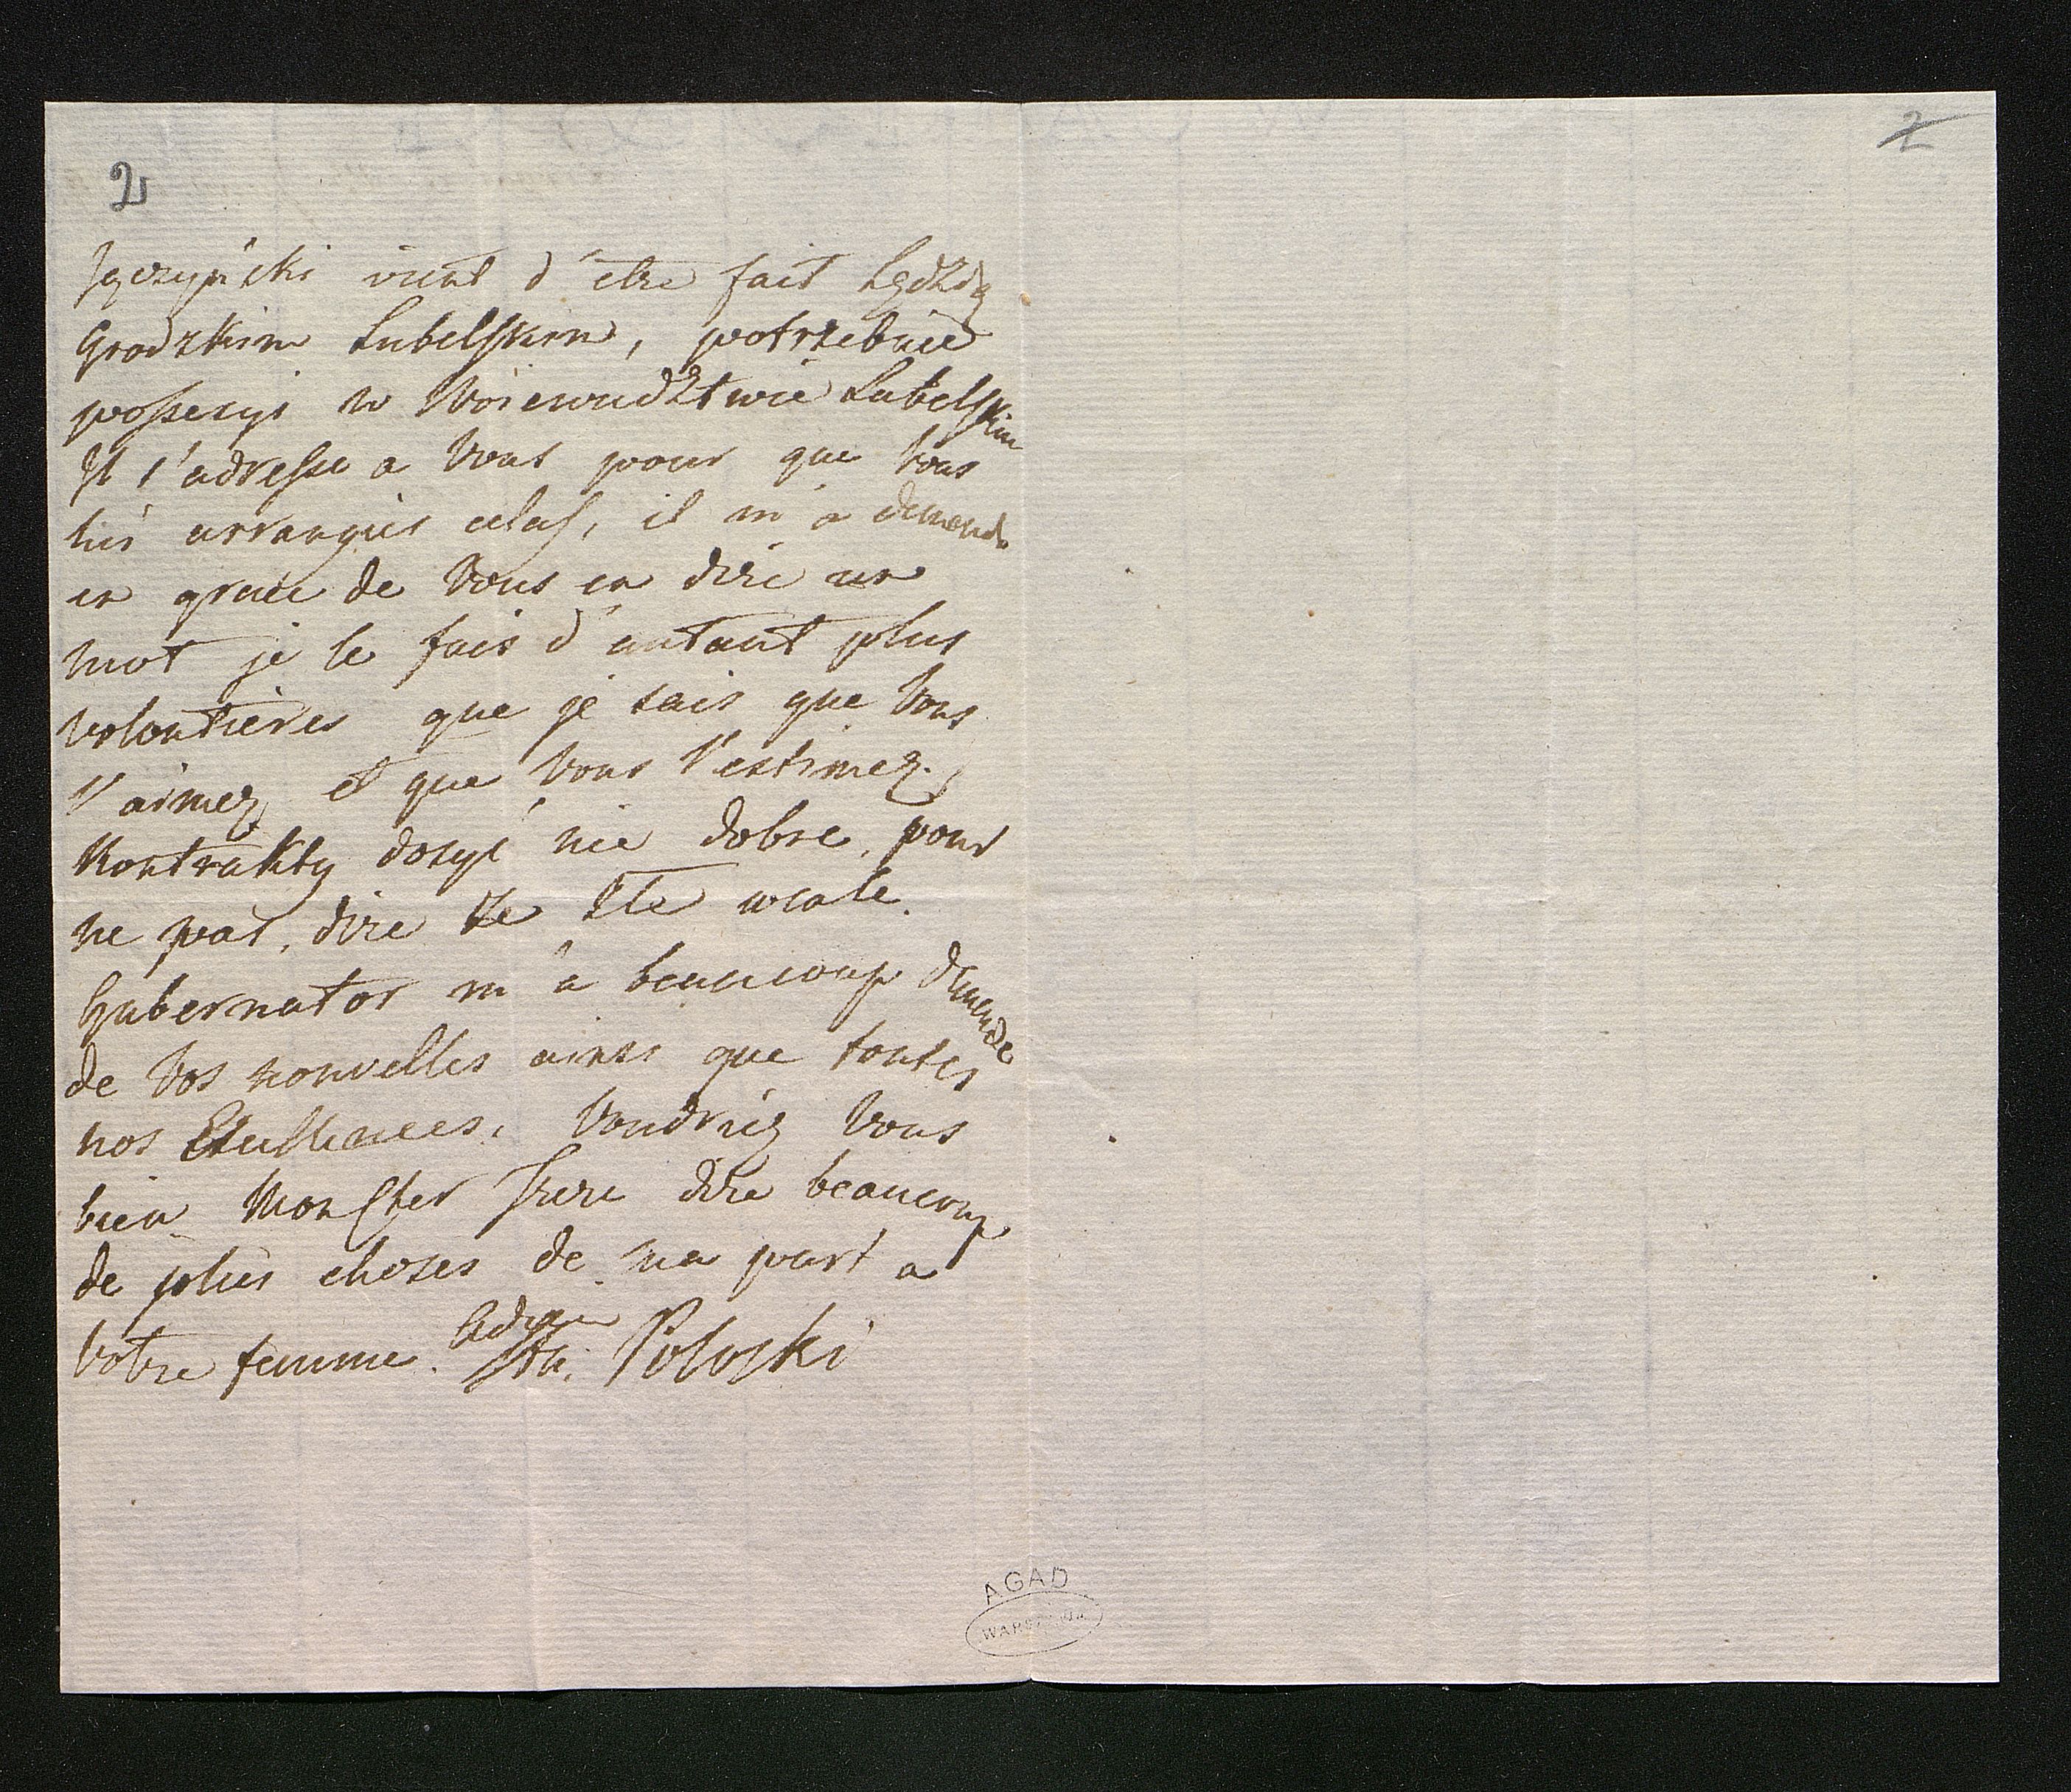 2
2
vient d'etre fait Sędzią
Grodzkim Lubelskim, potrzebuie
possesyi w Woiewudztwie Lubelskim
Il s'adresse a Vous pour que Vous
lui arrangies cela, il m'a demandé
en grace de Vous en dire un
mot je le fais d'autant plus
volontieres que je sais que Vous
l'aimez et que Vous l'estimez,
Kontrakty dosyć nie dobre, pour
ne pas dire że źle wcale.
Gubernator m'a beaucoup demandé
de Vos nouvelles ainsi que toutes
nos Excellences. Voudriez Vous
bien Mon Cher Frere dire beaucoup
de jolies choses de ma part a
Votre femme. Adieu
St. Potoski
AGAD
WARSZAWA